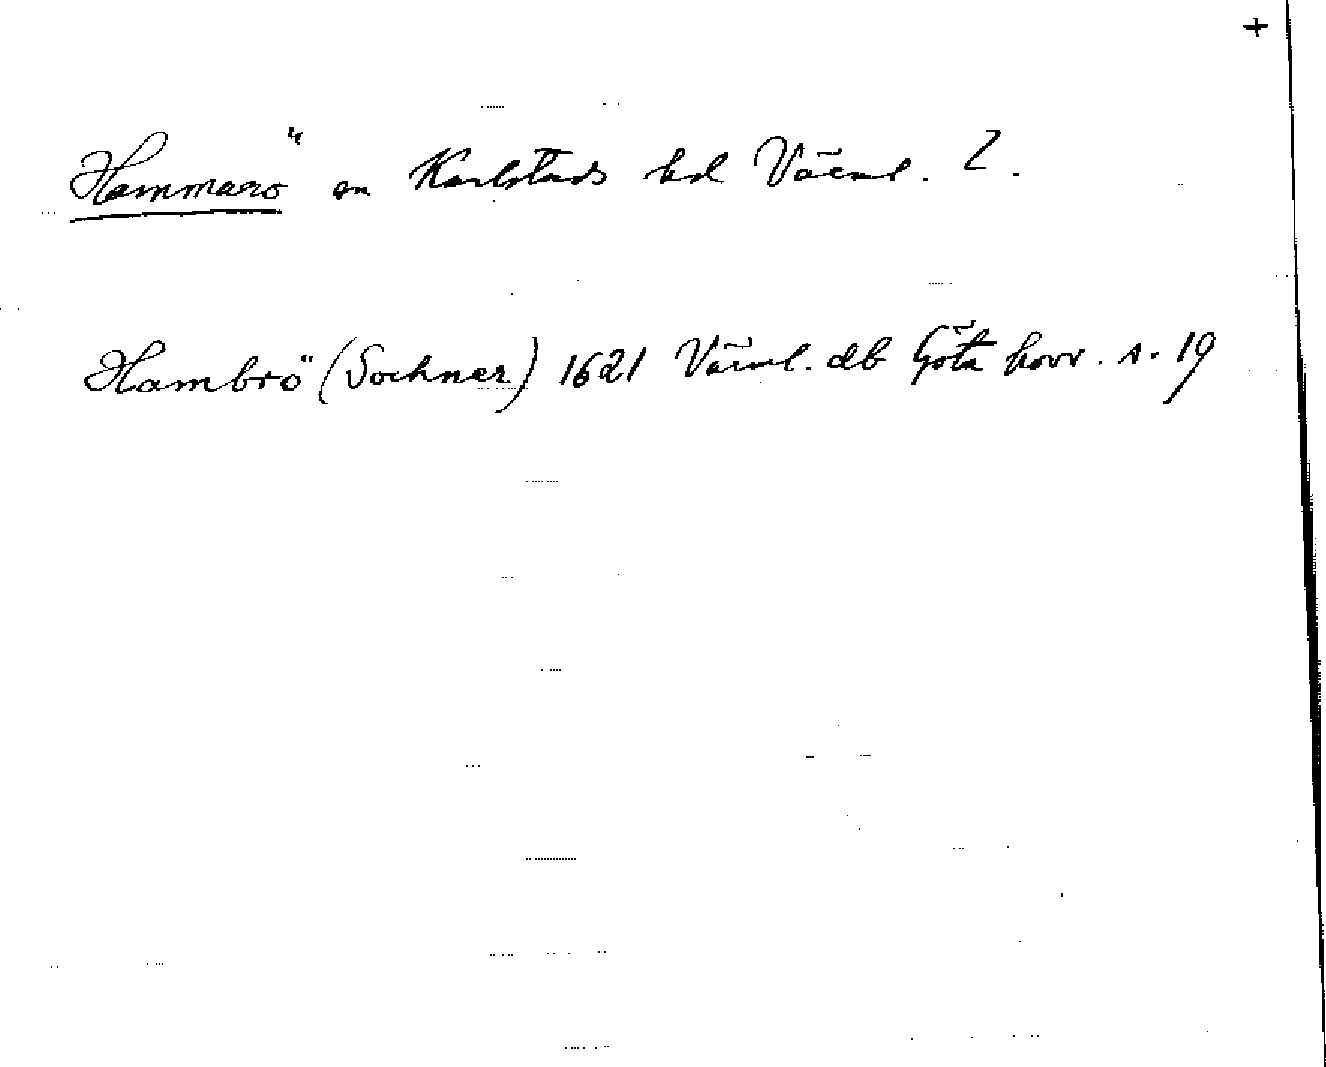 +
Hammarö sn Karlstads hd Värml. l.
Hambrö (Sochner) 1621 Värml. db Göta hovr. s. 19